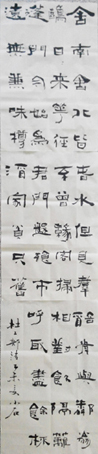 舍南舍北皆春水但見羣
鷗日來華徑不曾緣客掃
蓬門今始為君開盤飧市
遠無兼味樽酒家貧只舊
醅肯與鄰翁相對飲隔籬
呼取盡餘杯
杜工部詩